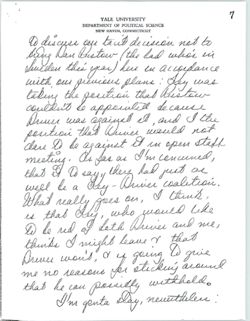 7
YALE UNIVERSITY
DEPARTMENT OF POLITICAL SCIENCE
NEW HAVEN, CONNECTICUT
To discuss our tacit decision not to
bring Dan Wistow (he had who's in
Sweden this year) here in accordance
with our previous plans: Key was
taking the position that Wistow
couldn't be appointed because
Driver was against it, and I the
position that Driver would not
dare to be against it in open staff
meeting. As far as I'm concerned,
that is to say, there had just as
well be a Key-Driver coalition.
What really goes on, I think,
is that Key, who would like
to be rid of both Driver and me,
thinks I might leave & that
Driver won't, & is going to give
me no reasons for sticking around
that he can possibly withhold.
I'm gonta stay, nevertheless: